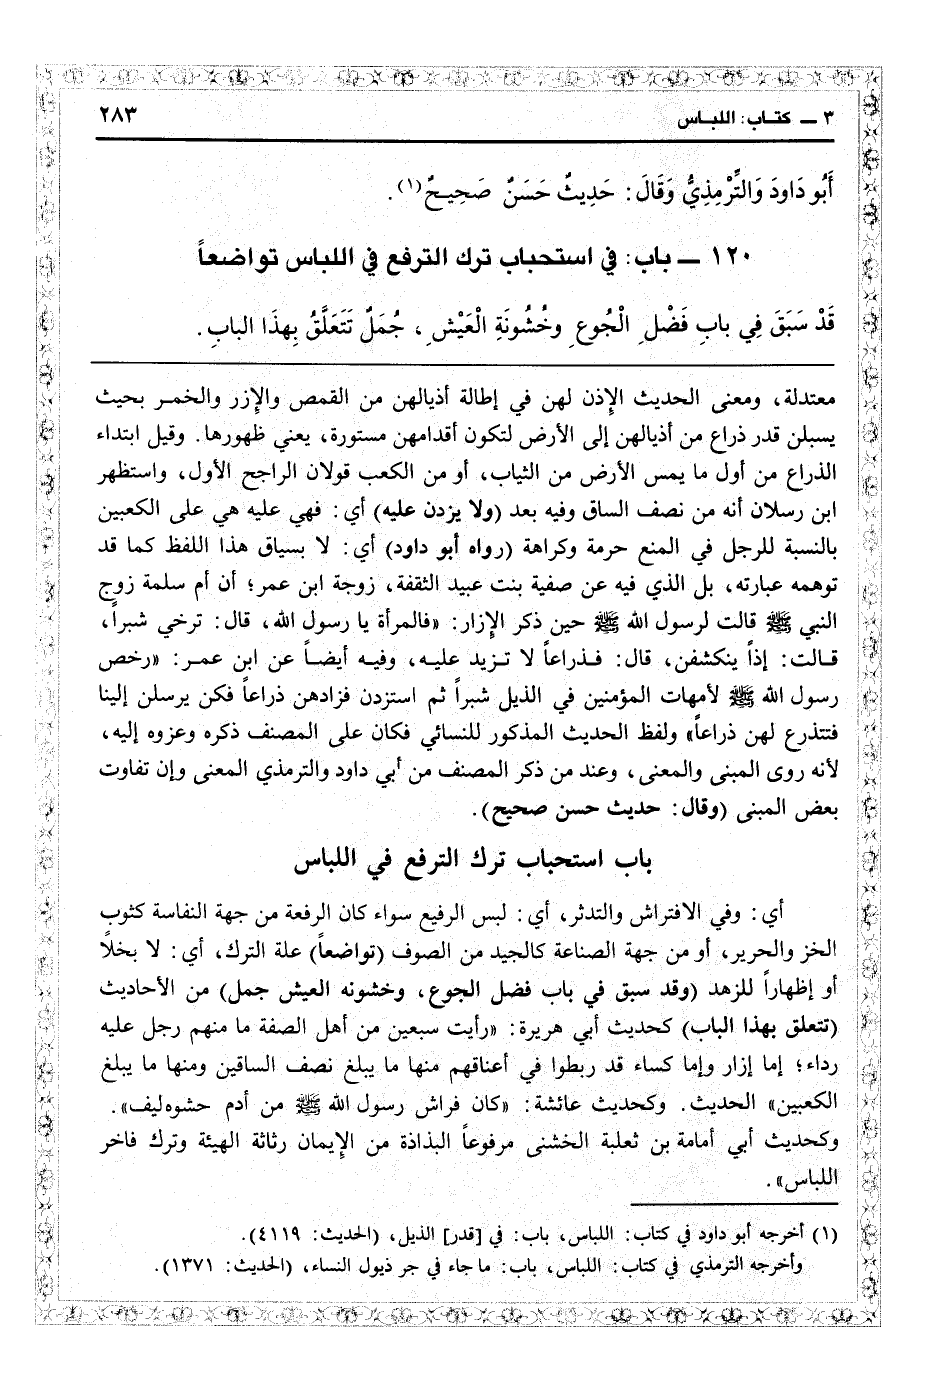 ٣ ــ كتـاب: اللبـاس
٢٨٣
أَبُو دَاودَ وَالتِّرْمِذِيُّ وَقَالَ: حَدِيثٌ حَسَنٌ صَحِيحٌ(١).
١٢٠ ــ باب: في استحباب ترك الترفع في اللباس تواضعاً
قَدْ سَبَقَ فِي بابِ فَضْلِ الْجُوعِ وخُشُونَةِ الْعَيْشِ، جُمَلٌ تَتَعَلَّقُ بِهذَا البابِ.
معتدلة، ومعنى الحديث الإذن لهن في إطالة أذيالهن من القمص والإزر والخمر بحيث
يسبلن قدر ذراع من أذيالهن إلى الأرض لتكون أقدامهن مستورة، يعني ظهورها. وقيل ابتداء
الذراع من أول ما يمس الأرض من الثياب، أو من الكعب قولان الراجح الأول، واستظهر
ابن رسلان أنه من نصف الساق وفيه بعد (ولا يزدن عليه) أي: فهي عليه هي على الكعبين
بالنسبة للرجل في المنع حرمة وكراهة (رواه أبو داود) أي: لا بسياق هذا اللفظ كما قد
توهمه عبارته، بل الذي فيه عن صفية بنت عبيد الثقفة، زوجة ابن عمر؛ أن أم سلمة زوج
النبي ﷺ قالت لرسول الله ﷺ حين ذكر الإزار: «فالمرأة يا رسول الله، قال: ترخي شبراً،
قـالت: إذاً ينكشفن، قال: فـذراعاً لا تـزيد عليـه، وفيه أيضـاً عن ابن عمـر: «رخص
رسول الله ﷺ لأمهات المؤمنين في الذيل شبراً ثم استزدن فزادهن ذراعاً فكن يرسلن إلينا
فتتذرع لهن ذراعاً» ولفظ الحديث المذكور للنسائي فكان على المصنف ذكره وعزوه إليه،
لأنه روى المبنى والمعنى، وعند من ذكر المصنف من أبي داود والترمذي المعنى وإن تفاوت
بعض المبنى (وقال: حديث حسن صحيح).
باب استحباب ترك الترفع في اللباس
أي: وفي الافتراش والتدثر، أي: لبس الرفيع سواء كان الرفعة من جهة النفاسة كثوب
الخز والحرير، أو من جهة الصناعة كالجيد من الصوف (تواضعاً) علة الترك، أي: لا بخلاً
أو إظهاراً للزهد (وقد سبق في باب فضل الجوع، وخشونه العيش جمل) من الأحاديث
(تتعلق بهذا الباب) كحديث أبي هريرة: «رأيت سبعين من أهل الصفة ما منهم رجل عليه
رداء؛ إما إزار وإما كساء قد ربطوا في أعناقهم منها ما يبلغ نصف الساقين ومنها ما يبلغ
الكعبين» الحديث. وكحديث عائشة: «كان فراش رسول الله ﷺ من أدم حشوه ليف».
وكحديث أبي أمامة بن ثعلبة الخشنى مرفوعاً البذاذة من الإيمان رثاثة الهيئة وترك فاخر
اللباس».
(١) أخرجه أبو داود في كتاب: اللباس، باب: في [قدر] الذيل، (الحديث: ٤١١٩).
وأخرجه الترمذي في كتاب: اللباس، باب: ما جاء في جر ذيول النساء، (الحديث: ١٣٧١).